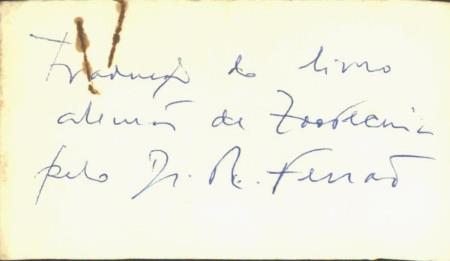 tradução do livro
alemão de Zootecnia
pelo Dr. R. Ferrão